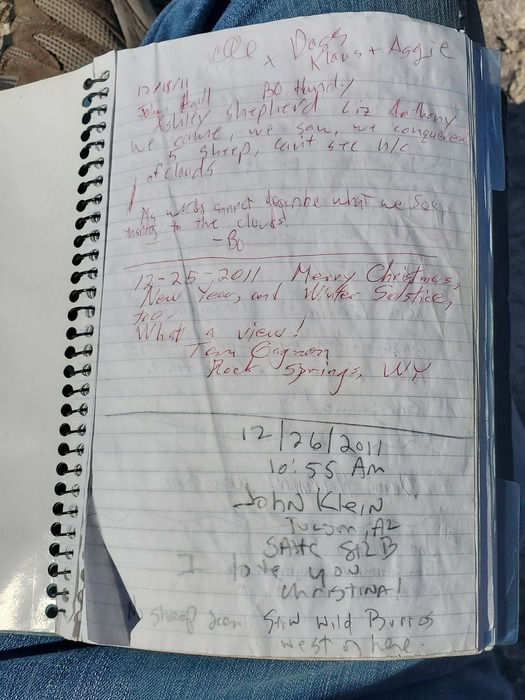 x Dogs
Klaus + Aggie
12/18/11 Bo Hundy
John Ashley shepherd Liz Anthony
we came, we saw, we conquered
5 sheep, can't see b/c
of clouds
My words cannot describe what we see,
thanks to the clouds!
- Bo
12-25-2011 Merry Christmas,
New Year, and Winter Solstice,
too.
What a view!
Tom Gagnon
Rock Springs, WY
12/26/2011
10:55 AM
John Klein
Tucson, AZ
SAHC
I love you
Christina!
No sheep seen Saw wild Burros
west of here.